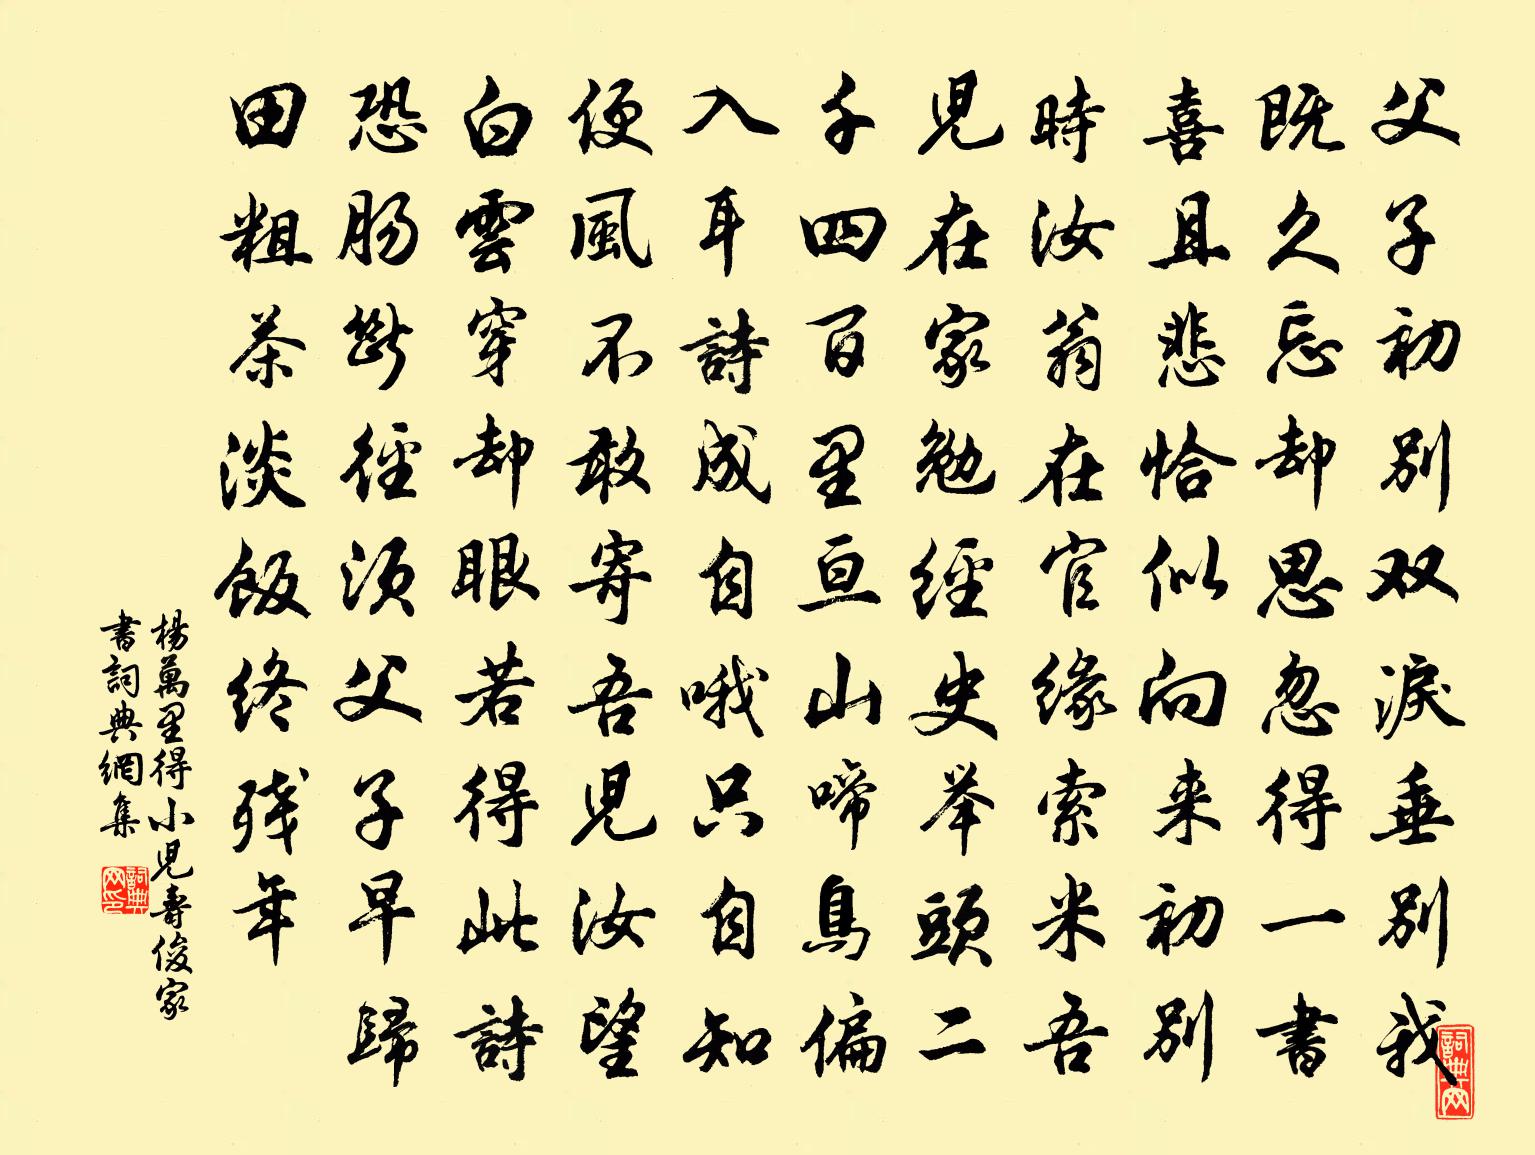 父子初别双淚垂别我
既久忘却思忽得一書
喜且悲恰似向来初别
時汝翁在官缘索米吾
児在家勉經史举頭二
千四百里亘山啼鳥偏
入耳詩成自哦只自知
便風不敢寄吾児汝望
白雲穿却眼若得此詩
恐肠斷徑須父子早歸
田粗茶淡飯终残年
楊萬里得小児壽俊家
書詞典網集
詞典网印
詞典网